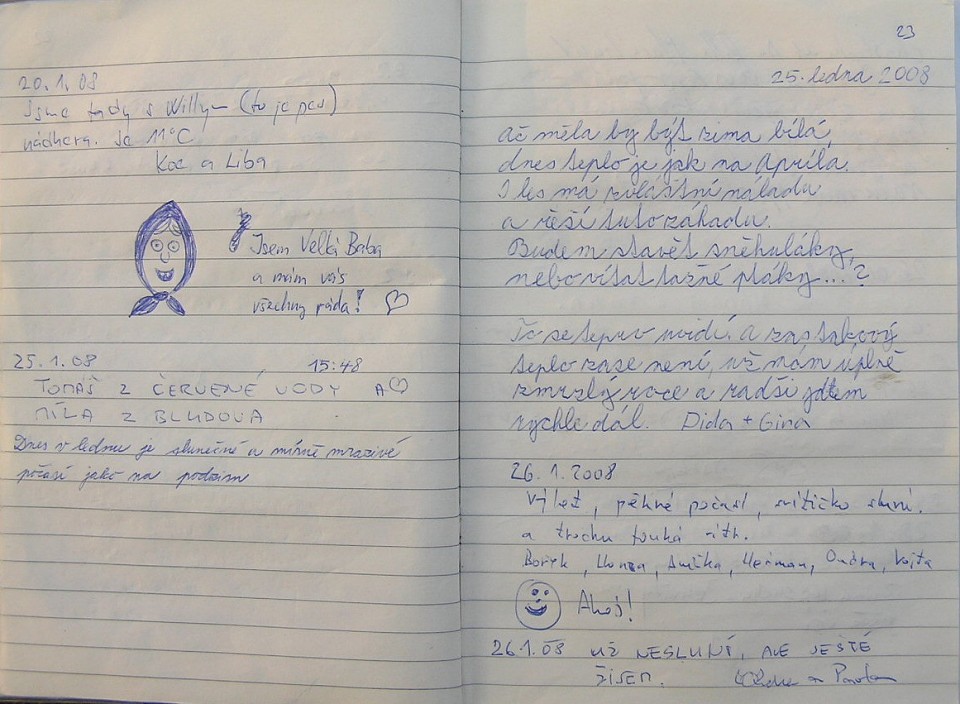 20.1.08
Jsme tady s Willym (to je pes)
nádhera. Je 11°C
Koc a Liba
Jsem Velká Baba
a mám vás
všechny ráda!
25.1.08 15:48
TOMÁŠ Z ČERVENÉ VODY A
MÍLA Z BLUDOVA
Dnes v lednu je slunečné a mírně mrazivé
počasí jako na podzim
23
25. ledna 2008
Ač měla by být zima bílá,
dnes teplo je jak na apríla.
I les má zvláštní náladu
a řeší tuto záhadu.
Budem stavět sněhuláky,
nebo vítat tažné ptáky...?
To se teprv uvidí a zas takový
teplo zase není, už mám úplně
zmrzlý ruce a radši jdem
rychle dál. Dida + Gina
26.1.2008
Výlet, pěkné počasí, sluníčko sluní.
a trochu fouká vítr.
Bořek, Honza, Anička, Heřman, Ondra, Vojta
Ahoj!
26.1.08 UŽ NESLUNÍ, ALE JEŠTĚ
ŽIJEM. a Pavla